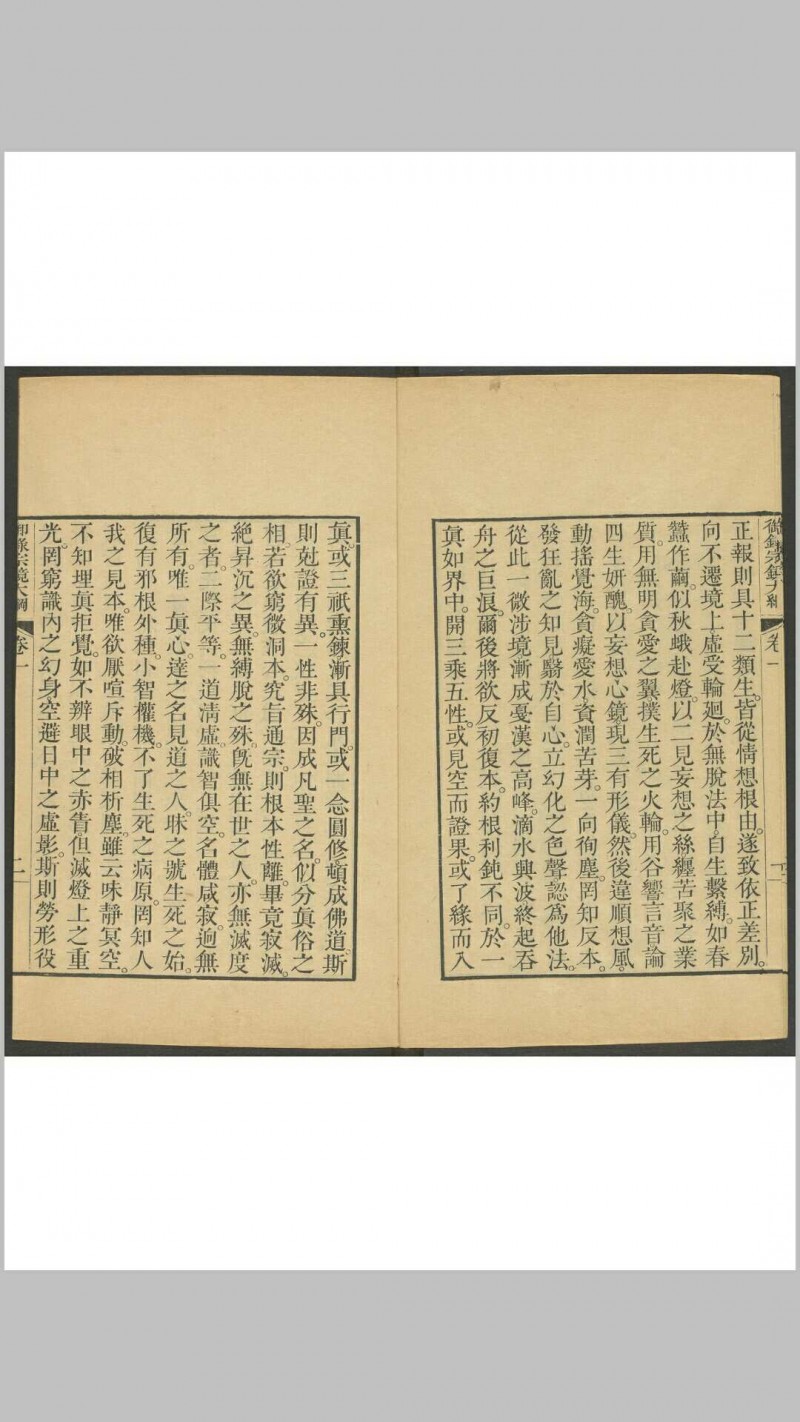 正報則具十二類生。皆從情想根由。遂致依正差別。
向不遷境上虛受輪廻。於無脫法中自生繫縛。如春
蠶作繭。似秋蛾赴燈。以二見妄想之絲。纒苦聚之業
質。用無明貪愛之翼。撲生死之火輪。用谷響言音論
四生妍醜。以妄想心鏡現三有形儀。然後違順想風。
動搖覺海。貪癡愛水。資潤苦芽。一向徇塵。罔知反本。
發狂亂之知見。翳於自心。立幻化之色聲。認爲他法。
從此一微涉境。漸成戞漢之高峰。滴水興波。終起吞
舟之巨浪。爾後將欲反初復本。約根利鈍不同。於一
眞如界中。開三乘五性。或見空而證果。或了緣而入
眞。或三祇熏鍊。漸具行門。或一念圓修。頓成佛道。斯
則尅證有異。一性非殊。因成凡聖之名。似分眞俗之
相。若欲窮微洞本。究旨通宗。則根本性離。畢竟寂滅。
絕昇沉之異。無縛脫之殊。旣無在世之人。亦無滅度
之者。二際平等。一道淸虛。識智俱空。名體咸寂。迥無
所有。唯一眞心。達之名見道之人。昧之號生死之始。
復有邪根外種。小智權機。不了生死之病原。罔知人
我之見本。唯欲厭喧斥動。破相析塵。雖云味靜冥空。
不知埋眞拒覺。如不辨眼中之赤眚。但滅燈上之重
光。罔窮識內之幻身。空避日中之虛影。斯則勞形役
御錄宗鏡大綱 卷一 二